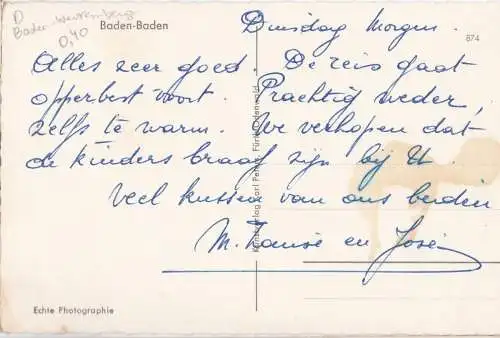 D
Baden-Württemberg
0,40
Baden-Baden
874
Dinsdag Morgen.
Alles zeer goed. De reis gaat
opperbest voort. Prachtig weder,
zelfs te warm. We verhopen dat
de kinders braaf zijn bij U.
Veel kussen van ons beiden
M. en José
Echte Photographie